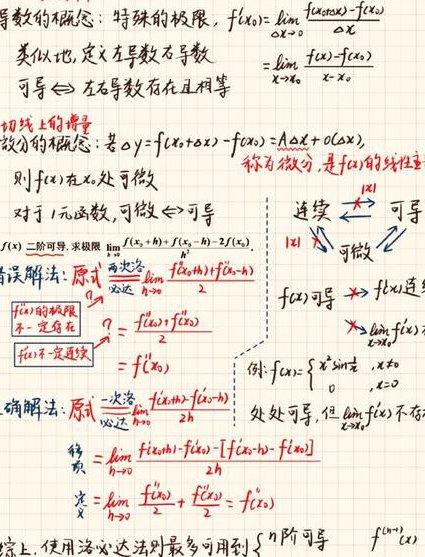 导数的概念: 特殊的极限, f'(x₀)=lim Δx→0 f(x₀+Δx)-f(x₀) / Δx
类似地,定义左导数右导数 =lim x→x₀ f(x)-f(x₀) / x-x₀
可导⇔左右导数存在且相等
切线上的增量
微分的概念: 若Δy=f(x₀+Δx)-f(x₀)=AΔx+o(Δx),
称为微分,是f(x)的线性主
则f(x)在x₀处可微
对于1元函数,可微⇔可导
连续 可导
|x|
|x|
可微
f(x) 二阶可导, 求极限 lim h→0 f(x₀+h)+f(x₀-h)-2f(x₀) / h²
错误解法: 原式 两次洛必达 lim h→0 f''(x₀+h)+f''(x₀-h) / 2
f''(x)的极限不一定存在
?
= f''(x₀)+f''(x₀) / 2
f''(x)不一定连续
?
= f''(x₀)
f(x)可导 f'(x)连续
lim x→x₀ f'(x)
例: f(x)={ x²sin 1/x , x≠0
0 , x=0
处处可导,但 lim x→x₀ f'(x)不存
正确解法: 原式 一次洛必达 lim h→0 f'(x₀+h)-f'(x₀-h) / 2h
移项 = lim h→0 f'(x₀+h)-f'(x₀)-[f'(x₀-h)-f'(x₀)] / 2h
定义 = lim h→0 f''(x₀)/2 + f''(x₀)/2 = f''(x₀)
综上,使用洛必达法则最多可用到{ n阶可导 f⁽ⁿ⁻¹⁾(x)